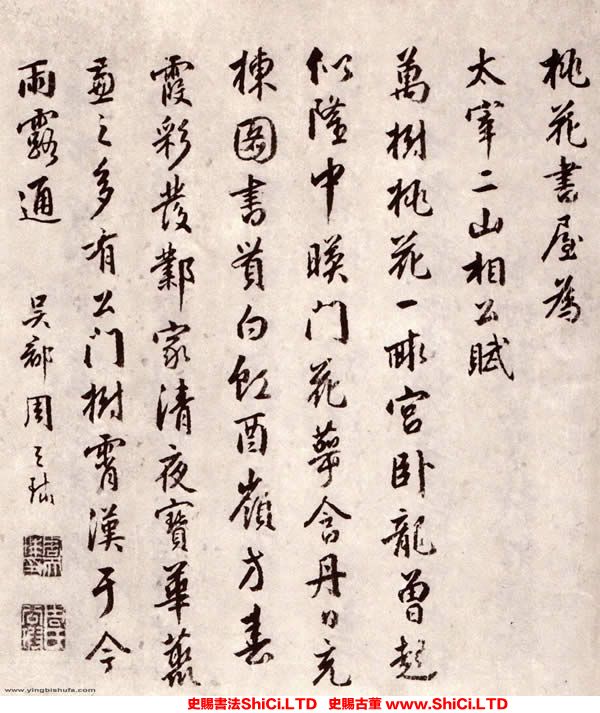 桃花書屋為
太宰二山相公賦
萬樹桃花一畝宮卧龍曾起
似隆中暎门花萼含丹日充
棟圖書貫白虹酉嶺方春
霞彩發鄴家清夜寶華叢
多有公门樹霄漢于今
雨露通
吳郡周天球
www.yingbishufa.com
史賜書法ShiCi.LTD 史賜古董 www.ShiCi.LTD